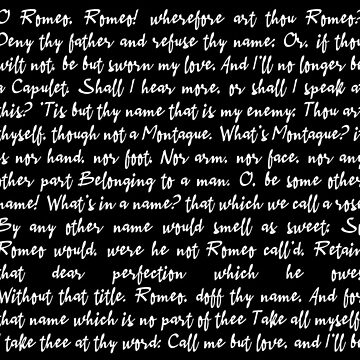 O Romeo, Romeo! wherefore art thou Romeo.
Deny thy father and refuse thy name; Or, if thou
wilt not, be but sworn my love, And I'll no longer be
a Capulet. Shall I hear more, or shall I speak at
this? 'Tis but thy name that is my enemy; Thou art
thyself, though not a Montague. What's Montague? i
is nor hand, nor foot, Nor arm, nor face, nor any
other part Belonging to a man. O, be some other
name! What's in a name? that which we call a rose
By any other name would smell as sweet; So
Romeo would, were he not Romeo call'd, Retain
that dear perfection which he owes
Without that title. Romeo, doff thy name, And for
that name which is no part of thee Take all myself.
I take thee at thy word: Call me but love, and I'll be